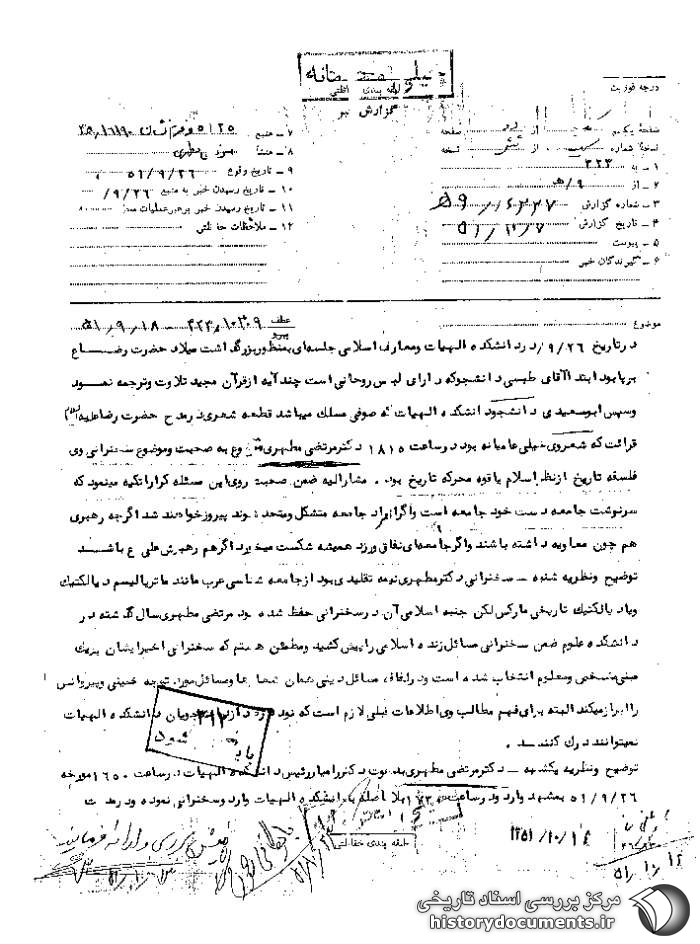 خیلی محرمانه
طبقه بندی حفاظتی
گزارش خبر
درجه فوریت
صفحه یکم از دو صفحه
نسخهٔ شماره از شش نسخه
۱ ـ به ۳۲۳
۲ ـ از ۹/ه
۳ ـ شماره گزارش
۴ ـ تاریخ گزارش
۵ ـ پیوست
۶ ـ گیرندگان خبر
۷ ـ منبع ۵۱۲۵
۸ ـ منشأ
۹ ـ تاریخ وقوع ۵۱/۹/۲۶
۱۰ ـ تاریخ رسیدن خبر به منبع ۹/۲۶/
۱۱ ـ تاریخ رسیدن خبر برهبر عملیات
۱۲ ـ ملاحظات حفاظتی
موضوع
عطف
پیرو
۳۲۳/۱۰۳۰۹ ۵۱/۹/۱۸
در تاریخ ۹/۲۶/ در دانشکده الهیات ومعارف اسلامی جلسه‌ای بمنظور بزرگداشت میلاد حضرت رضا ع
برپا بود ابتدا آقای طبسی دانشجو که دارای لباس روحانی است چند آیه از قرآن مجید تلاوت وترجمه نمود
وسپس ابوسعیدی دانشجو دانشکده الهیات که صوفی مسلک میباشد قطعه شعری در مدح حضرت رضا علیه
قرائت که شعر وی خیلی عامیانه بود در ساعت ۱۸۱۵ دکتر مرتضی مطهری شروع به صحبت وموضوع سخنرانی وی
فلسفه تاریخ از نظر اسلام یا قوه محرکه تاریخ بود . مشارالیه ضمن صحبت روی این مسئله کرارا تکیه مینمود که
سرنوشت جامعه دست خود جامعه است واگر افراد جامعه متشکل ومتحد شوند پیروز خواهند شد اگرچه رهبری
هم چون معاویه داشته باشند واگر جامعه‌ای نفاق ورزد همیشه شکست میخورد اگرهم رهبرش علی ع باشد
توضیح ونظریه شنبه ـ سخنرانی دکتر مطهری نیمه تقلیدی بود از جامعه شناسی غرب مانند ماتریالیسم دیالکتیک
ویا دیالکتیک تاریخی مارکس لکن جنبه اسلامی آن در سخنرانی حفظ شده بود مرتضی مطهری سال گذشته در
دانشکده علوم ضمن سخنرانی مسائل زنده اسلامی را پیش کشید ومطمئن هستم که سخنرانی اخیر ایشان بر یک
مبنی مشخص ومعلوم انتخاب شده است ودر لفافه مسائل دینی همان شعارها ومسائل مورد توجه خمینی وپیروانش
را ابراز میکند البته برای فهم مطالب وی اطلاعات قبلی لازم است که نود درصد از دانشجویان دانشکده الهیات
نمیتوانند درک کنند .
توضیح ونظریه یکشنبه ـ دکتر مرتضی مطهری بدعوت دکتر رامیار رئیس دانشکده الهیات در ساعت ۱۶۵۰ مورخه
۵۱/۹/۲۶ بمشهد وارد ودر ساعت بلافاصله بدانشکده الهیات وارد وسخنرانی نموده ودر مدت
۳۱۲
بایگانی شود
طبقه بندی حفاظتی
۱۳۵۱/۱۰/۱۴
بررسی و ارائه فرمایید
مرکز بررسی اسناد تاریخی
historydocuments.ir